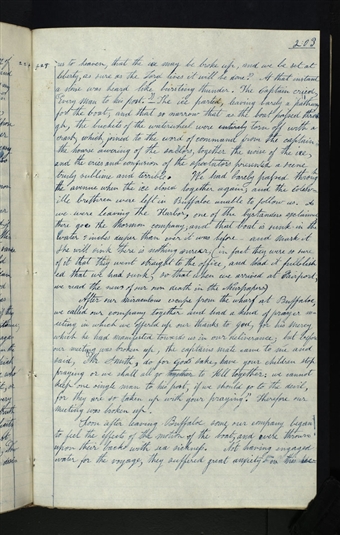 203
us to heaven, that the ice may be broke up, and we be set at
liberty, as sure as the Lord lives it will be done? At that instant
a noise was heard like bursting thunder. The Captain cried,
"Every man to his post." The ice parted, leaving barely a pathway
for the boat, and that so narrow that as the boat passed throu
gh, the buckets of the waterwheel were entirely torn off with a
crash, which joined to the word of command from the captain,
the hoarse answering of the sailors, together, the noise of the ice,
and the cries and confusion of the spectators presented a scene
truly sublime and terrible. We had barely passed through
the avenue when the ice closed together again, and the Coles-
ville brethren were left in Buffalo unable to follow us. As
we were leaving the Harbor, one of the bystanders exclaimed
there goes the Mormon company, and that boat is sunk in the
water 9 inches deeper than ever it was before. and mark it
She will sink there is nothing surer. (in fact they were so sure
of it that they went straight to the office, and had it publish
ed that we had sunk, so that when we arrived at Fairport,
we read the news of our own death in the Newspaper)
After our miraculous escape from the wharf at Buffalo,
we called our company together and had a kind of prayer m
eeting in which we offered up our thanks to god, for his mercy
which he had manifested towards us in our deliverance, but before
our meeting was broken up, the captains mate came to me and
said, Mr Smith, do for gods sake, have your children stop
praying or we shall all go together to Hell together: we cannot
keep one single man to his post, if we should go to the devil,
for they are so taken up with your praying." Therefore our
meeting was broken up.
Soon after leaving Buffalo some our company began
to feel the effects of the motion of the boat, and were thrown
upon their backs with sea sickness. Not having engaged
water for the voyage, they suffered great